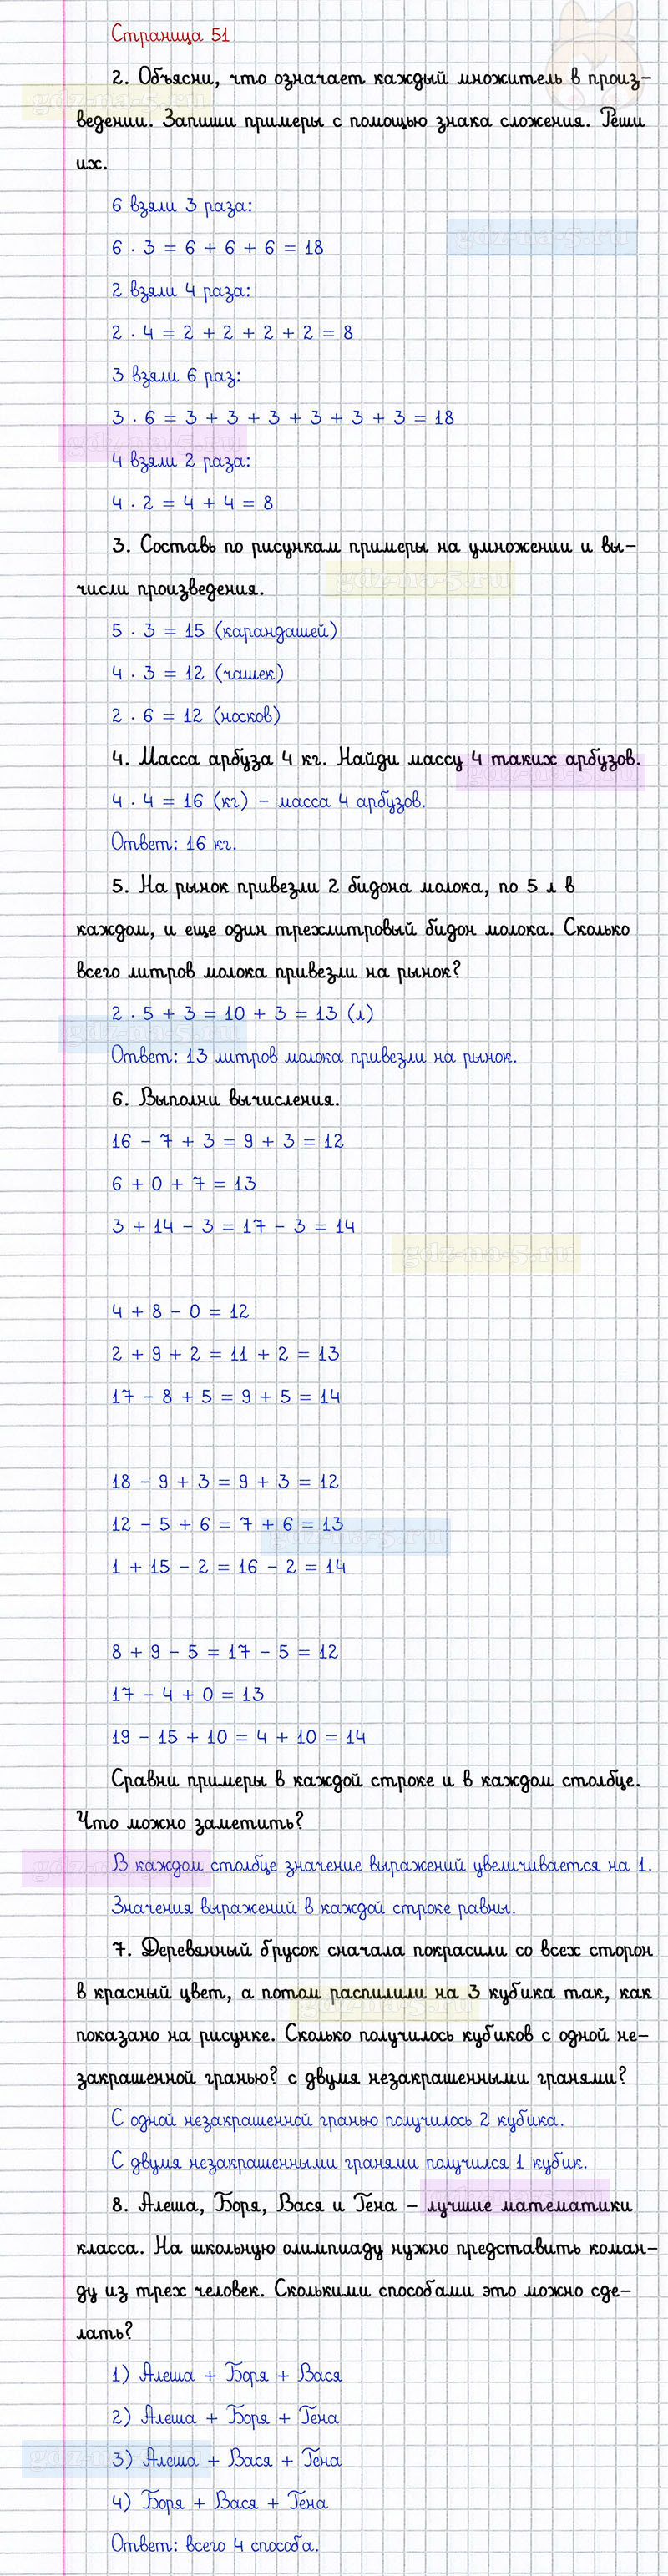 Страница 51
2. Объясни, что означает каждый множитель в произ-
ведении. Запиши примеры с помощью знака сложения. Реши
их.
6 взяли 3 раза:
6 · 3 = 6 + 6 + 6 = 18
gdz-na-5.ru
2 взяли 4 раза:
2 · 4 = 2 + 2 + 2 + 2 = 8
3 взяли 6 раз:
3 · 6 = 3 + 3 + 3 + 3 + 3 + 3 = 18
gdz-na-5.ru
4 взяли 2 раза:
4 · 2 = 4 + 4 = 8
3. Составь по рисункам примеры на умножении и вы-
числи произведения.
gdz-na-5.ru
5 · 3 = 15 (карандашей)
4 · 3 = 12 (чашек)
2 · 6 = 12 (носков)
4. Масса арбуза 4 кг. Найди массу 4 таких арбузов.
4 · 4 = 16 (кг) - масса 4 арбузов.
Ответ: 16 кг.
5. На рынок привезли 2 бидона молока, по 5 л в
каждом, и еще один трехлитровый бидон молока. Сколько
всего литров молока привезли на рынок?
2 · 5 + 3 = 10 + 3 = 13 (л)
Ответ: 13 литров молока привезли на рынок.
6. Выполни вычисления.
16 - 7 + 3 = 9 + 3 = 12
6 + 0 + 7 = 13
3 + 14 - 3 = 17 - 3 = 14
gdz-na-5.ru
4 + 8 - 0 = 12
2 + 9 + 2 = 11 + 2 = 13
17 - 8 + 5 = 9 + 5 = 14
18 - 9 + 3 = 9 + 3 = 12
12 - 5 + 6 = 7 + 6 = 13
1 + 15 - 2 = 16 - 2 = 14
8 + 9 - 5 = 17 - 5 = 12
17 - 4 + 0 = 13
19 - 15 + 10 = 4 + 10 = 14
Сравни примеры в каждой строке и в каждом столбце.
Что можно заметить?
В каждом столбце значение выражений увеличивается на 1.
Значения выражений в каждой строке равны.
7. Деревянный брусок сначала покрасили со всех сторон
в красный цвет, а потом распилили на 3 кубика так, как
показано на рисунке. Сколько получилось кубиков с одной не-
закрашенной гранью? с двумя незакрашенными гранями?
С одной незакрашенной гранью получилось 2 кубика.
С двумя незакрашенными гранями получился 1 кубик.
8. Алеша, Боря, Вася и Гена - лучшие математики
класса. На школьную олимпиаду нужно представить коман-
ду из трех человек. Сколькими способами это можно сде-
лать?
1) Алеша + Боря + Вася
2) Алеша + Боря + Гена
3) Алеша + Вася + Гена
4) Боря + Вася + Гена
Ответ: всего 4 способа.